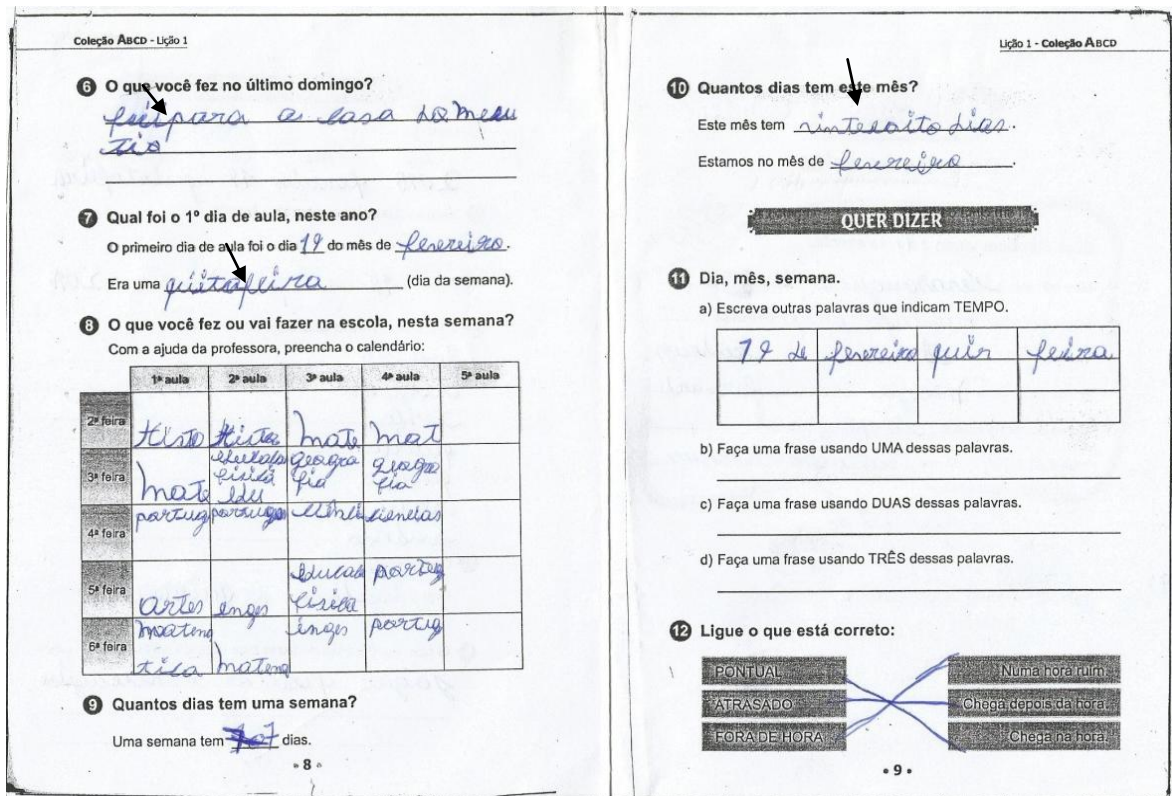 Coleção ABCD - Lição 1
6 O que você fez no último domingo?
fuis para a casa do meeu
tio
7 Qual foi o 1º dia de aula, neste ano?
O primeiro dia de aula foi o dia 19 do mês de fevereiro.
Era uma quitafeira (dia da semana).
8 O que você fez ou vai fazer na escola, nesta semana?
Com a ajuda da professora, preencha o calendário:
1ª aula 2ª aula 3ª aula 4ª aula 5ª aula
2ª feira Histo Histo mate mat
3ª feira mate educaca fisica edu geogra fia geogra fia
4ª feira portug portugu ciencias
5ª feira artes inges educaca fisica portug
6ª feira matema tica matema inges portug
9 Quantos dias tem uma semana?
Uma semana tem 7 dias.
• 8 •
Lição 1 - Coleção ABCD
10 Quantos dias tem este mês?
Este mês tem vinteroito dias.
Estamos no mês de fevereiro.
QUER DIZER
11 Dia, mês, semana.
a) Escreva outras palavras que indicam TEMPO.
19 de fevereiro quin feira
b) Faça uma frase usando UMA dessas palavras.
c) Faça uma frase usando DUAS dessas palavras.
d) Faça uma frase usando TRÊS dessas palavras.
12 Ligue o que está correto:
PONTUAL Numa hora ruim.
ATRASADO Chega depois da hora.
FORA DE HORA Chega na hora.
• 9 •